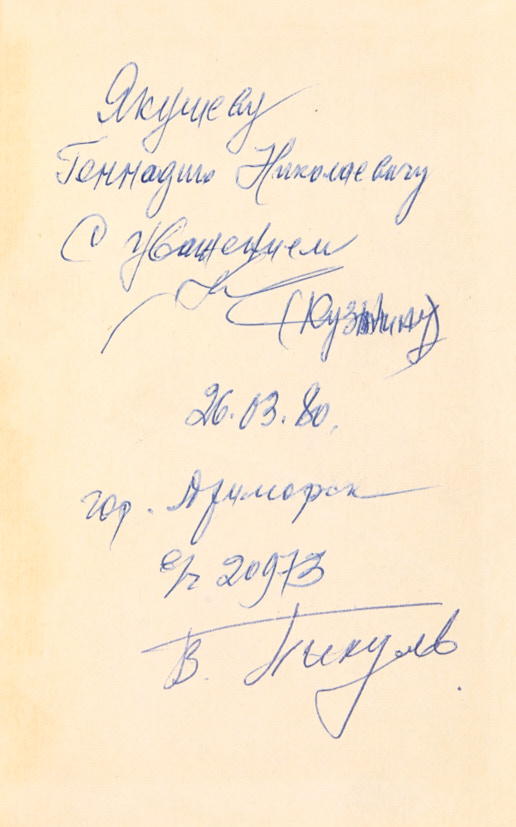 Якушеву
Геннадию Николаевичу
С уважением
26.03.80.
гор. Приморск
20973
В. Пикуль